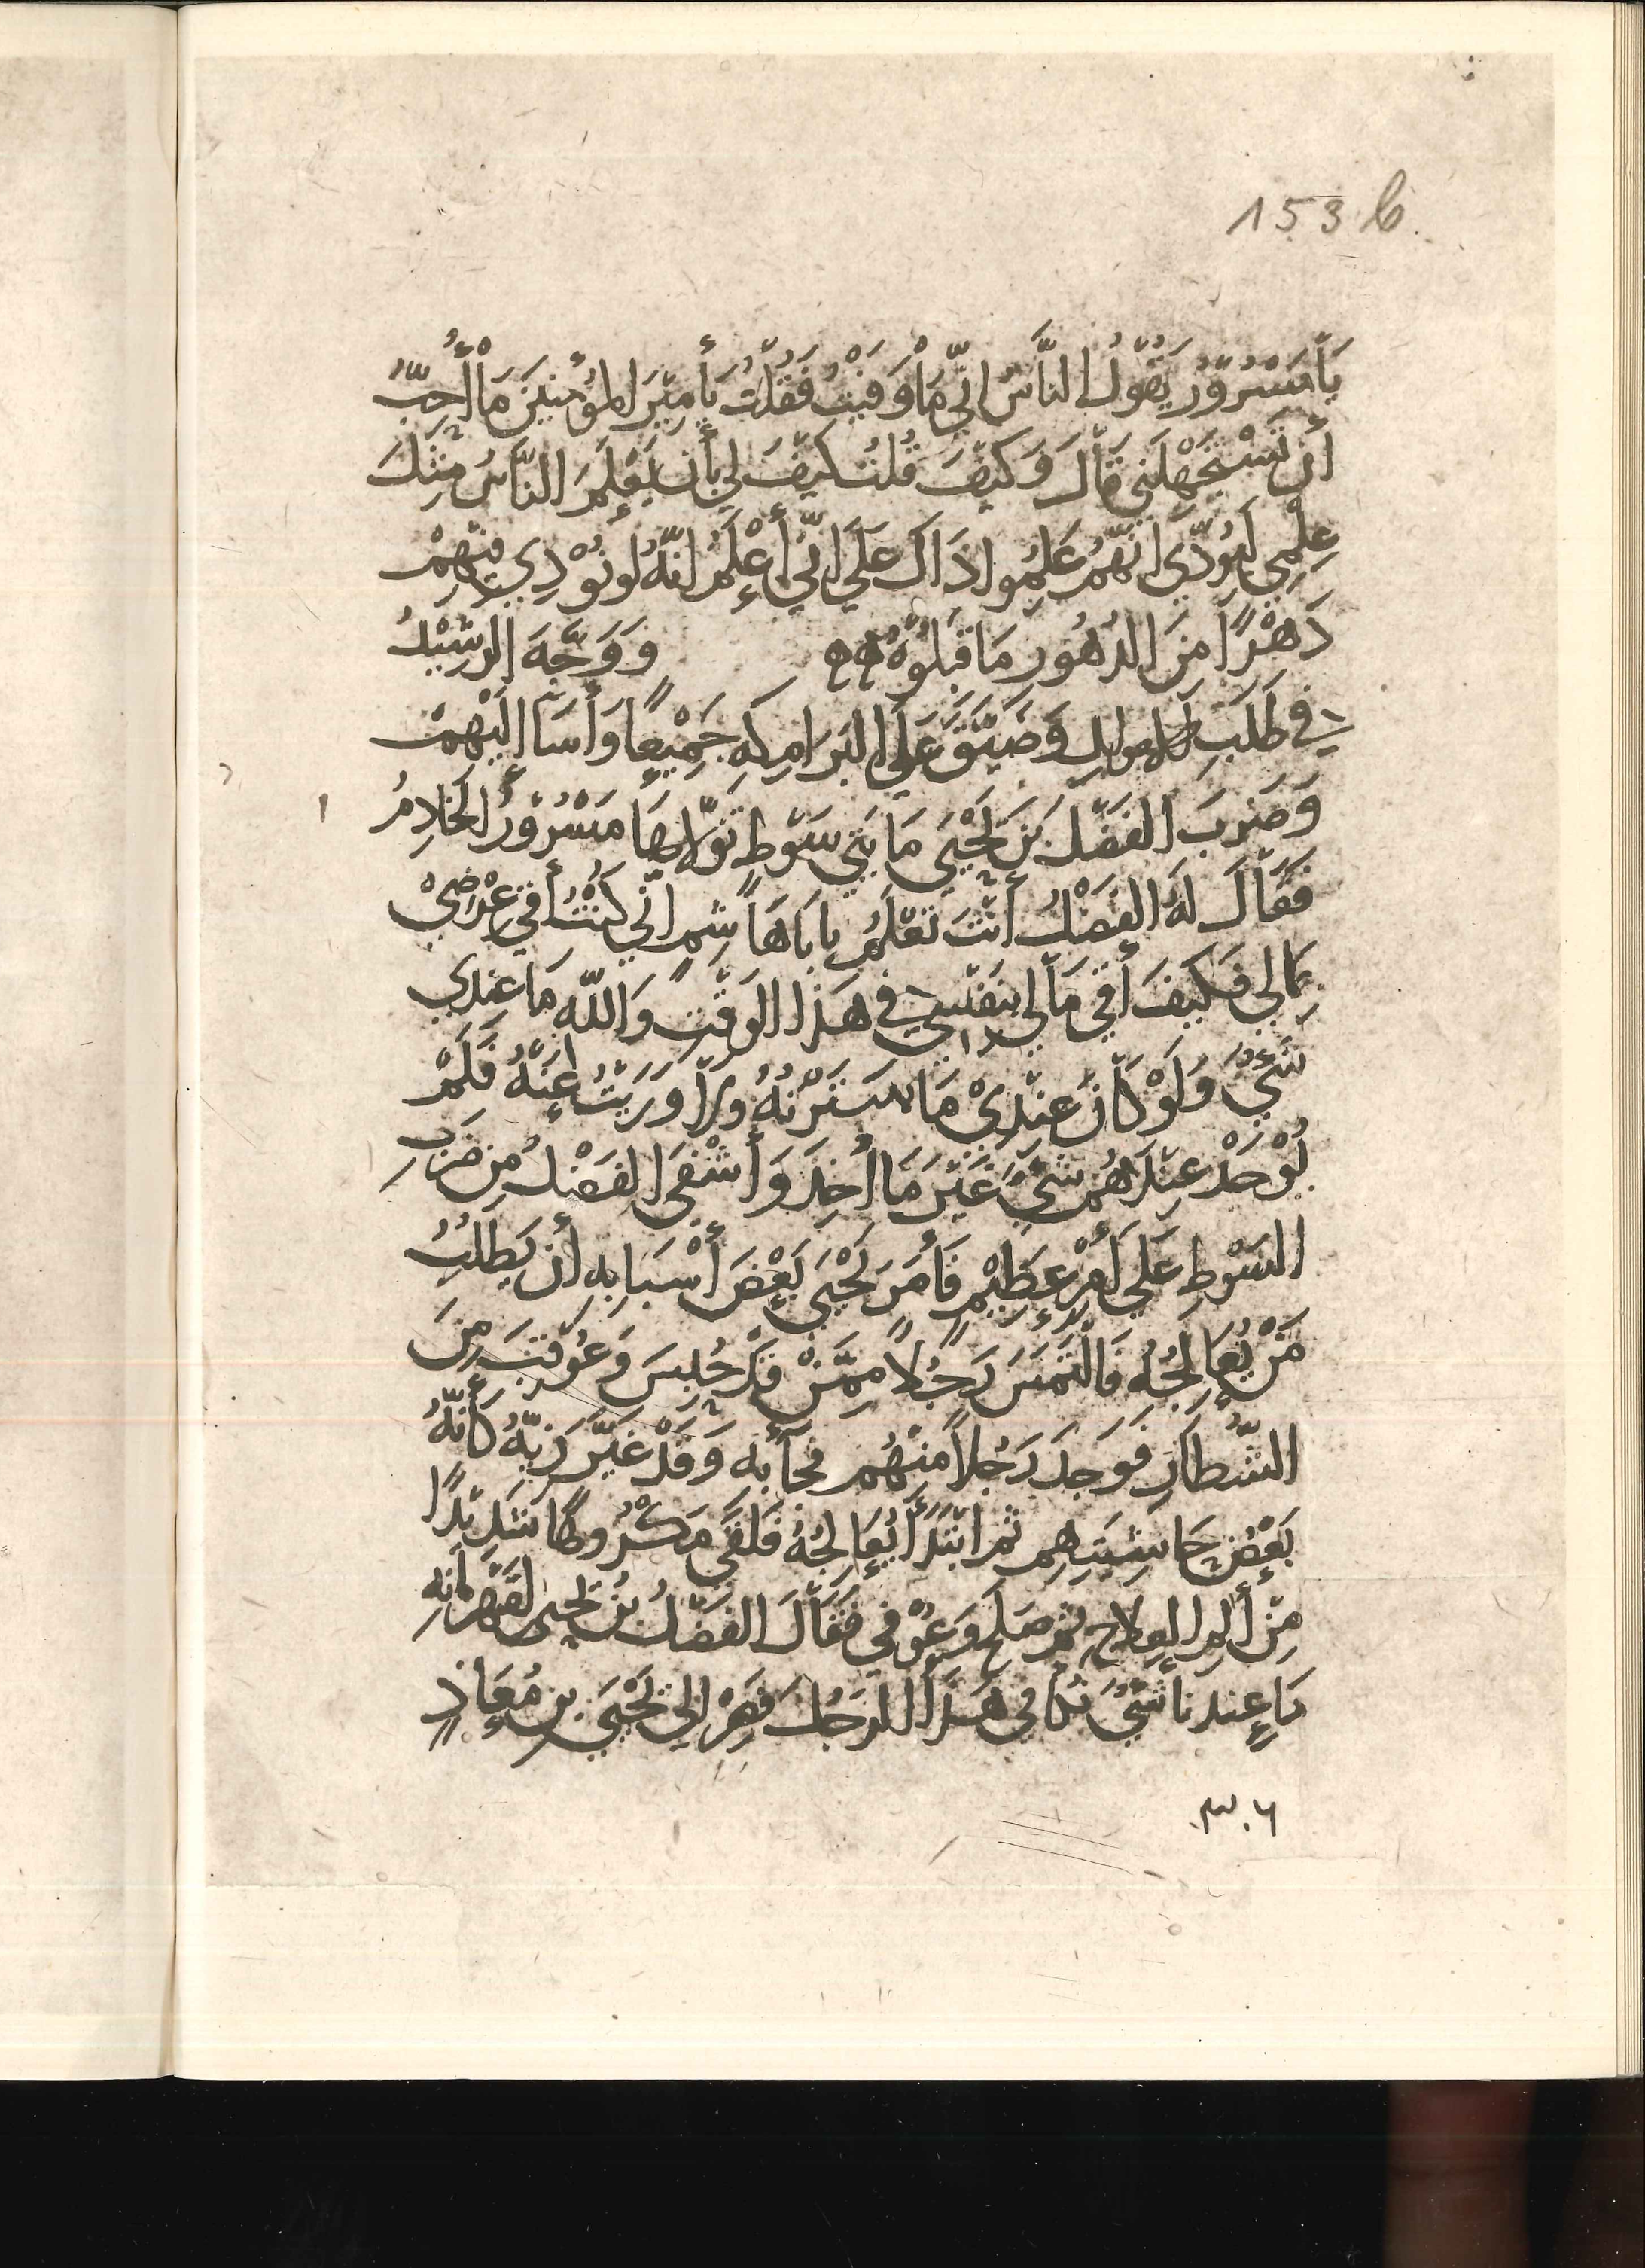 153 b
يَا مَسْرُوْرُ يَقُوْلُ النَّاسُ انِّي مَا وَفَيْتُ فَقُلْتُ يَأَمِيْرَ المؤْمنينَ مَا أُحِبُّ
أَن تَسْتَجْهِلَني قَالَ وَكَيْفَ قُلتُ كَيْفَ لي بأَن يَعْلَمَ النَّاسُ مِثْلَ
عِلْمِي انَّهُمْ عَلِمُوا ذَاكَ عَلَي انِّي أَعْلَمُ انَّهُ لو نُوْدِي فيْهِمْ
دَهْرًا مِنَ الدُهُور مَا قَبلوْهُ وَوَجَّهَ الرشِيْدُ
في طَلَبِ الاموالِ وَضَيَّقَ عَلي البَرامِكهِ جَمِيْعًا وَأَسَا اليْهمْ
وَضَربَ الفَضْلَ بنَ يَحْيَى مَايتَي سَوْطٍ تَولاهَا مَسْرُوْرُ الخَادِمُ
فَقَالَ لَهُ الفَضْلُ أَنْتَ تَعْلَمُ يابَاهَاشِم انِّي كنْتُ أَقِي عِرْضِيْ
بمَالي فَكَيفَ أَقي مَالي بنَفْسِي في هَذا الوَقْت وَاللّهِ مَا عِندي
شَيْءٌ وَلَوْ كَانَ عِنْدِيْ مَا سَتَرْتهُ وَلا وَرَيْتُ عَنْهُ فَلَمْ
يُوْجَدْ عِنْدَهُمْ شَيْءٌ غَيْرَ مَا أُخِذَ وَأَشْفَى الفَضْلُ مِن ضَربِ
السَوْطِ عَلَي أَمْرٍ عَظِيْمٍ فَأَمَرَ يَحْيَى بَعْضَ أَسْبَابِهِ أَن يَطلُبَ
مَنْ يُعَالِجُهُ فَالْتَمَسَ رَجُلاً مِمَّنْ قدْ حُبِسَ وَعُوْقبَ مِنَ
الشُّطَّارِ فَوَجدَ رَجُلاً مِنْهُم فَجَأَ بهِ وَقَدْ غَيَّرَ زِيَّهُ كَأَنَّهُ
بَعْضُ حَاشِيَتِهِم ثم ابْتَدَأَ يُعَالِجُهُ فَلَقَيَ مَكْرُوهًا شَدِيْدًا
مِنْ أَلمِ العِلاجِ ثم صَلحَ وَعُوْفي فَقَالَ الفَضْلُ بْنُ يَحْيى لقَهْرَمَانِهِ
مَا عِندنا شَيْءٌ نُكَافي هَذَا الرَجُلَ فَمُرْ الي يَحْيَى بن مُعَاذٍ